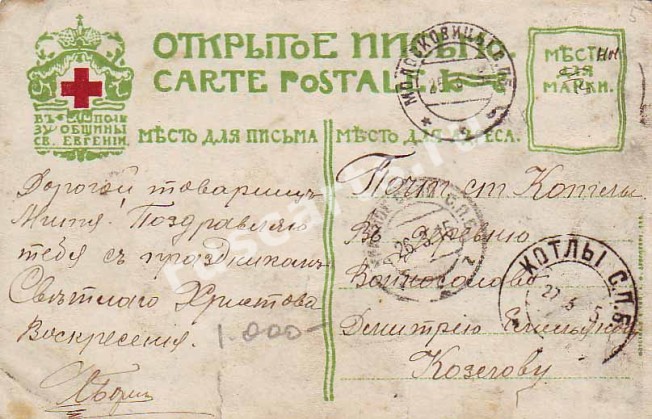 ОТКРЫТОЕ ПИСЬМО
CARTE POSTALE
ВЪ ПОЛЬ
ЗУ ОБЩИНЫ
СВ. ЕВГЕНІИ
МѢСТО
ДЛЯ
МАРКИ.
МѢСТО ДЛЯ ПИСЬМА
МѢСТО ДЛЯ АДРЕСА.
Дорогой товарищъ
Митя! Поздравляю
тебя съ праздникомъ
Свѣтлаго Христова
Воскресенія.
1.000-
Почт ст Котлы
Въ деревню
Войносолово
Дмитрію
Козегову
МОЛОСКОВИЦЫ С.П.Б.
26.3.15
КОТЛЫ С.П.Б.
27 3 5